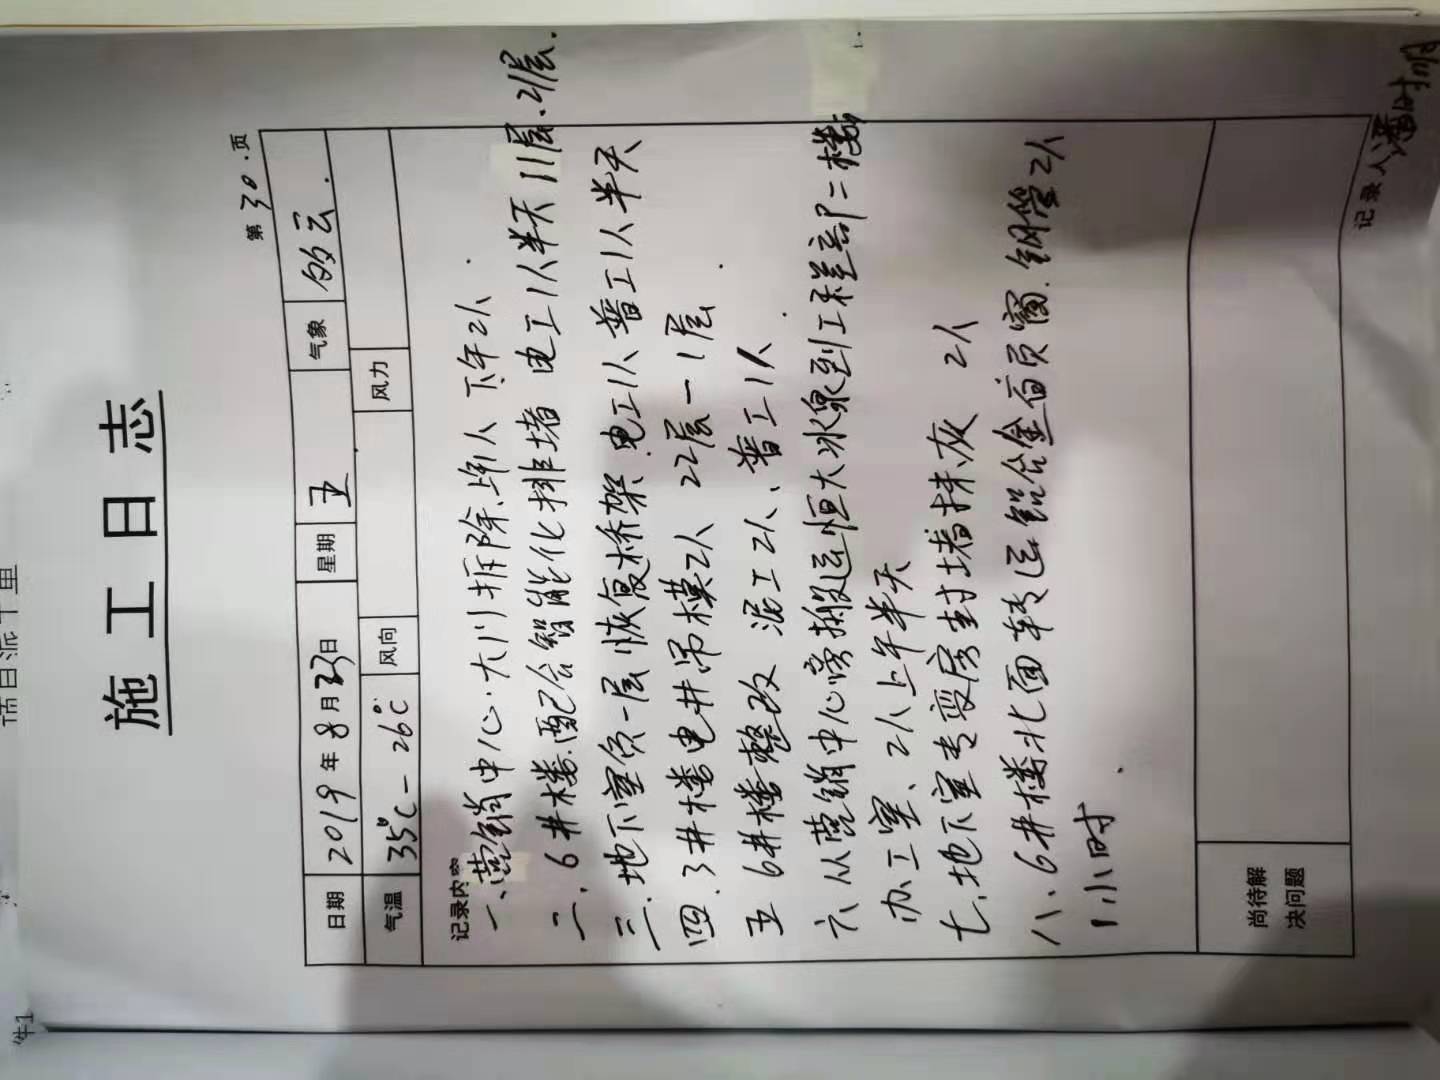 施工日志
第30.页
日期 2019年8月23日 星期 五 气象 多云.
气温 35℃-26℃ 风向 风力
记录内容
一、营销中心.大门拆除.上午1人 下午2人.
二.6井楼.配合智能化排堵 电工1人半天 11层.21层.
三.地下室负一层恢复桥架.电工1人 普工1人半天
四.3井楼电井吊模2人 22层一1层.
五 6井楼整改 泥工2人、普工1人
六 从营销中心旁搬运恒大冰泉到工程部二楼
办工室、2人上午半天
七.地下室专变房封堵抹灰 2人
八、6井楼北面转运铝合金百页窗.钢管2人
1小时.
尚待解
决问题
记录人
件1